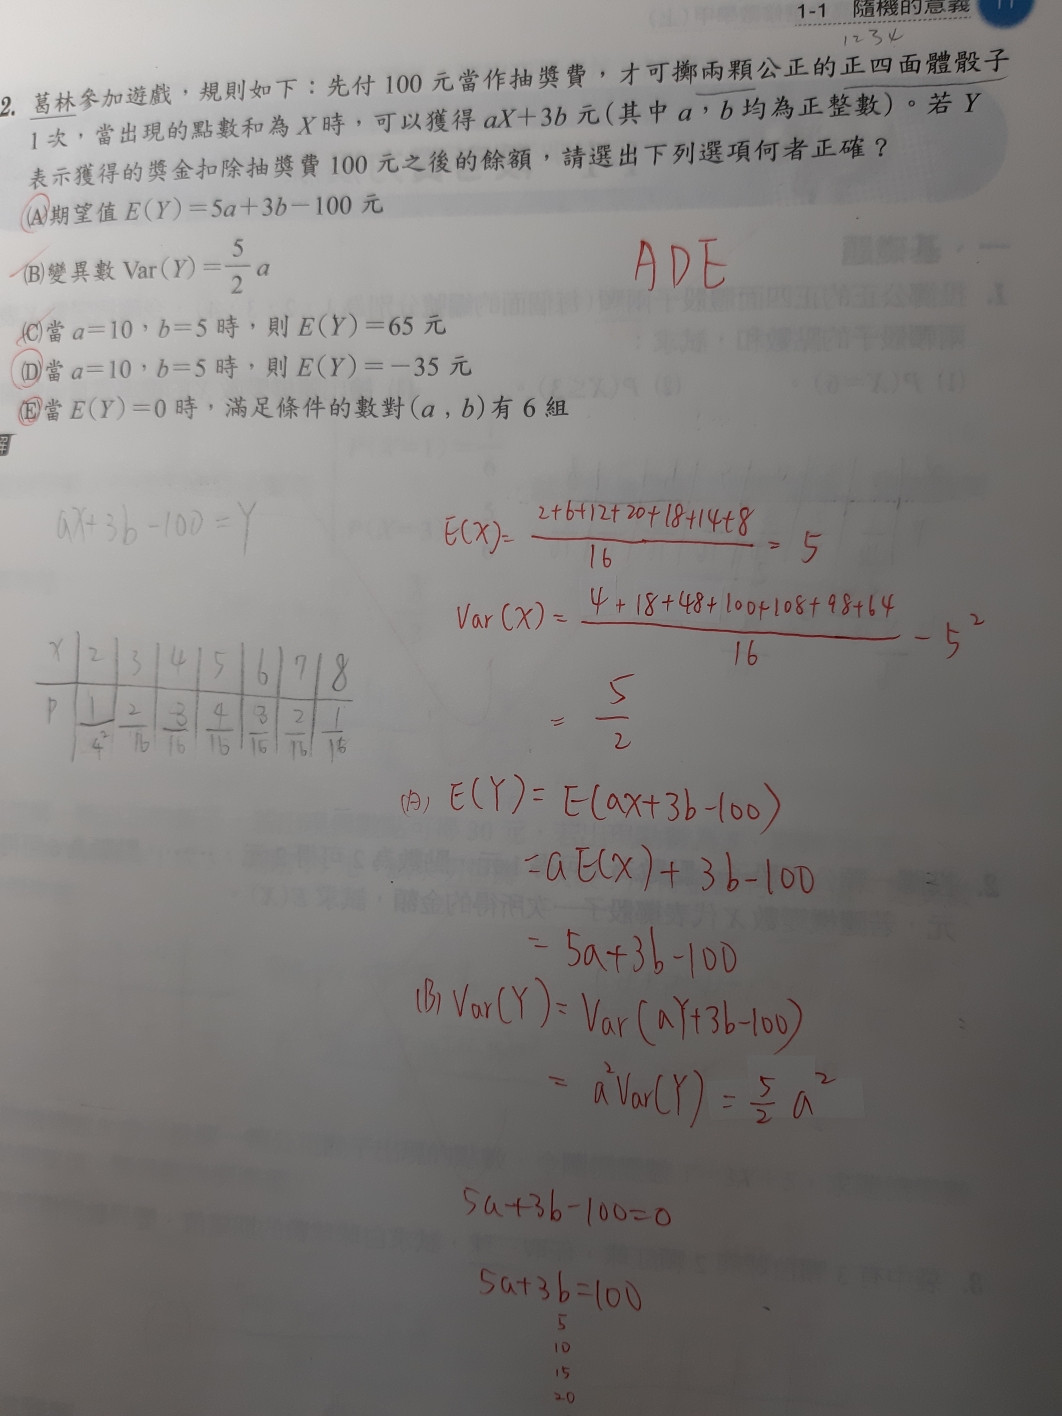 1-1 隨機的意義 11
1 2 3 4
2. 葛林參加遊戲，規則如下：先付100元當作抽獎費，才可擲兩顆公正的正四面體骰子
1次，當出現的點數和為X時，可以獲得aX+3b元(其中a，b均為正整數)。若Y
表示獲得的獎金扣除抽獎費100元之後的餘額，請選出下列選項何者正確？
(A)期望值E(Y)=5a+3b-100元
(B)變異數Var(Y)=5/2 a
(C)當a=10，b=5時，則E(Y)=65元
(D)當a=10，b=5時，則E(Y)=-35元
(E)當E(Y)=0時，滿足條件的數對(a , b)有6組
ADE
解
aX+3b-100=Y
E(X)= 2+6+12+20+18+14+8/16 = 5
Var(X)= 4+18+48+100+108+98+64/16 - 5²
= 5/2
X 2 3 4 5 6 7 8
P 1/4² 2/16 3/16 4/16 3/16 2/16 1/16
(A) E(Y)= E(aX+3b-100)
=aE(X)+3b-100
= 5a+3b-100
(B) Var(Y)= Var(aY+3b-100)
= a²Var(Y) = 5/2 a²
5a+3b-100=0
5a+3b=100
5
10
15
20